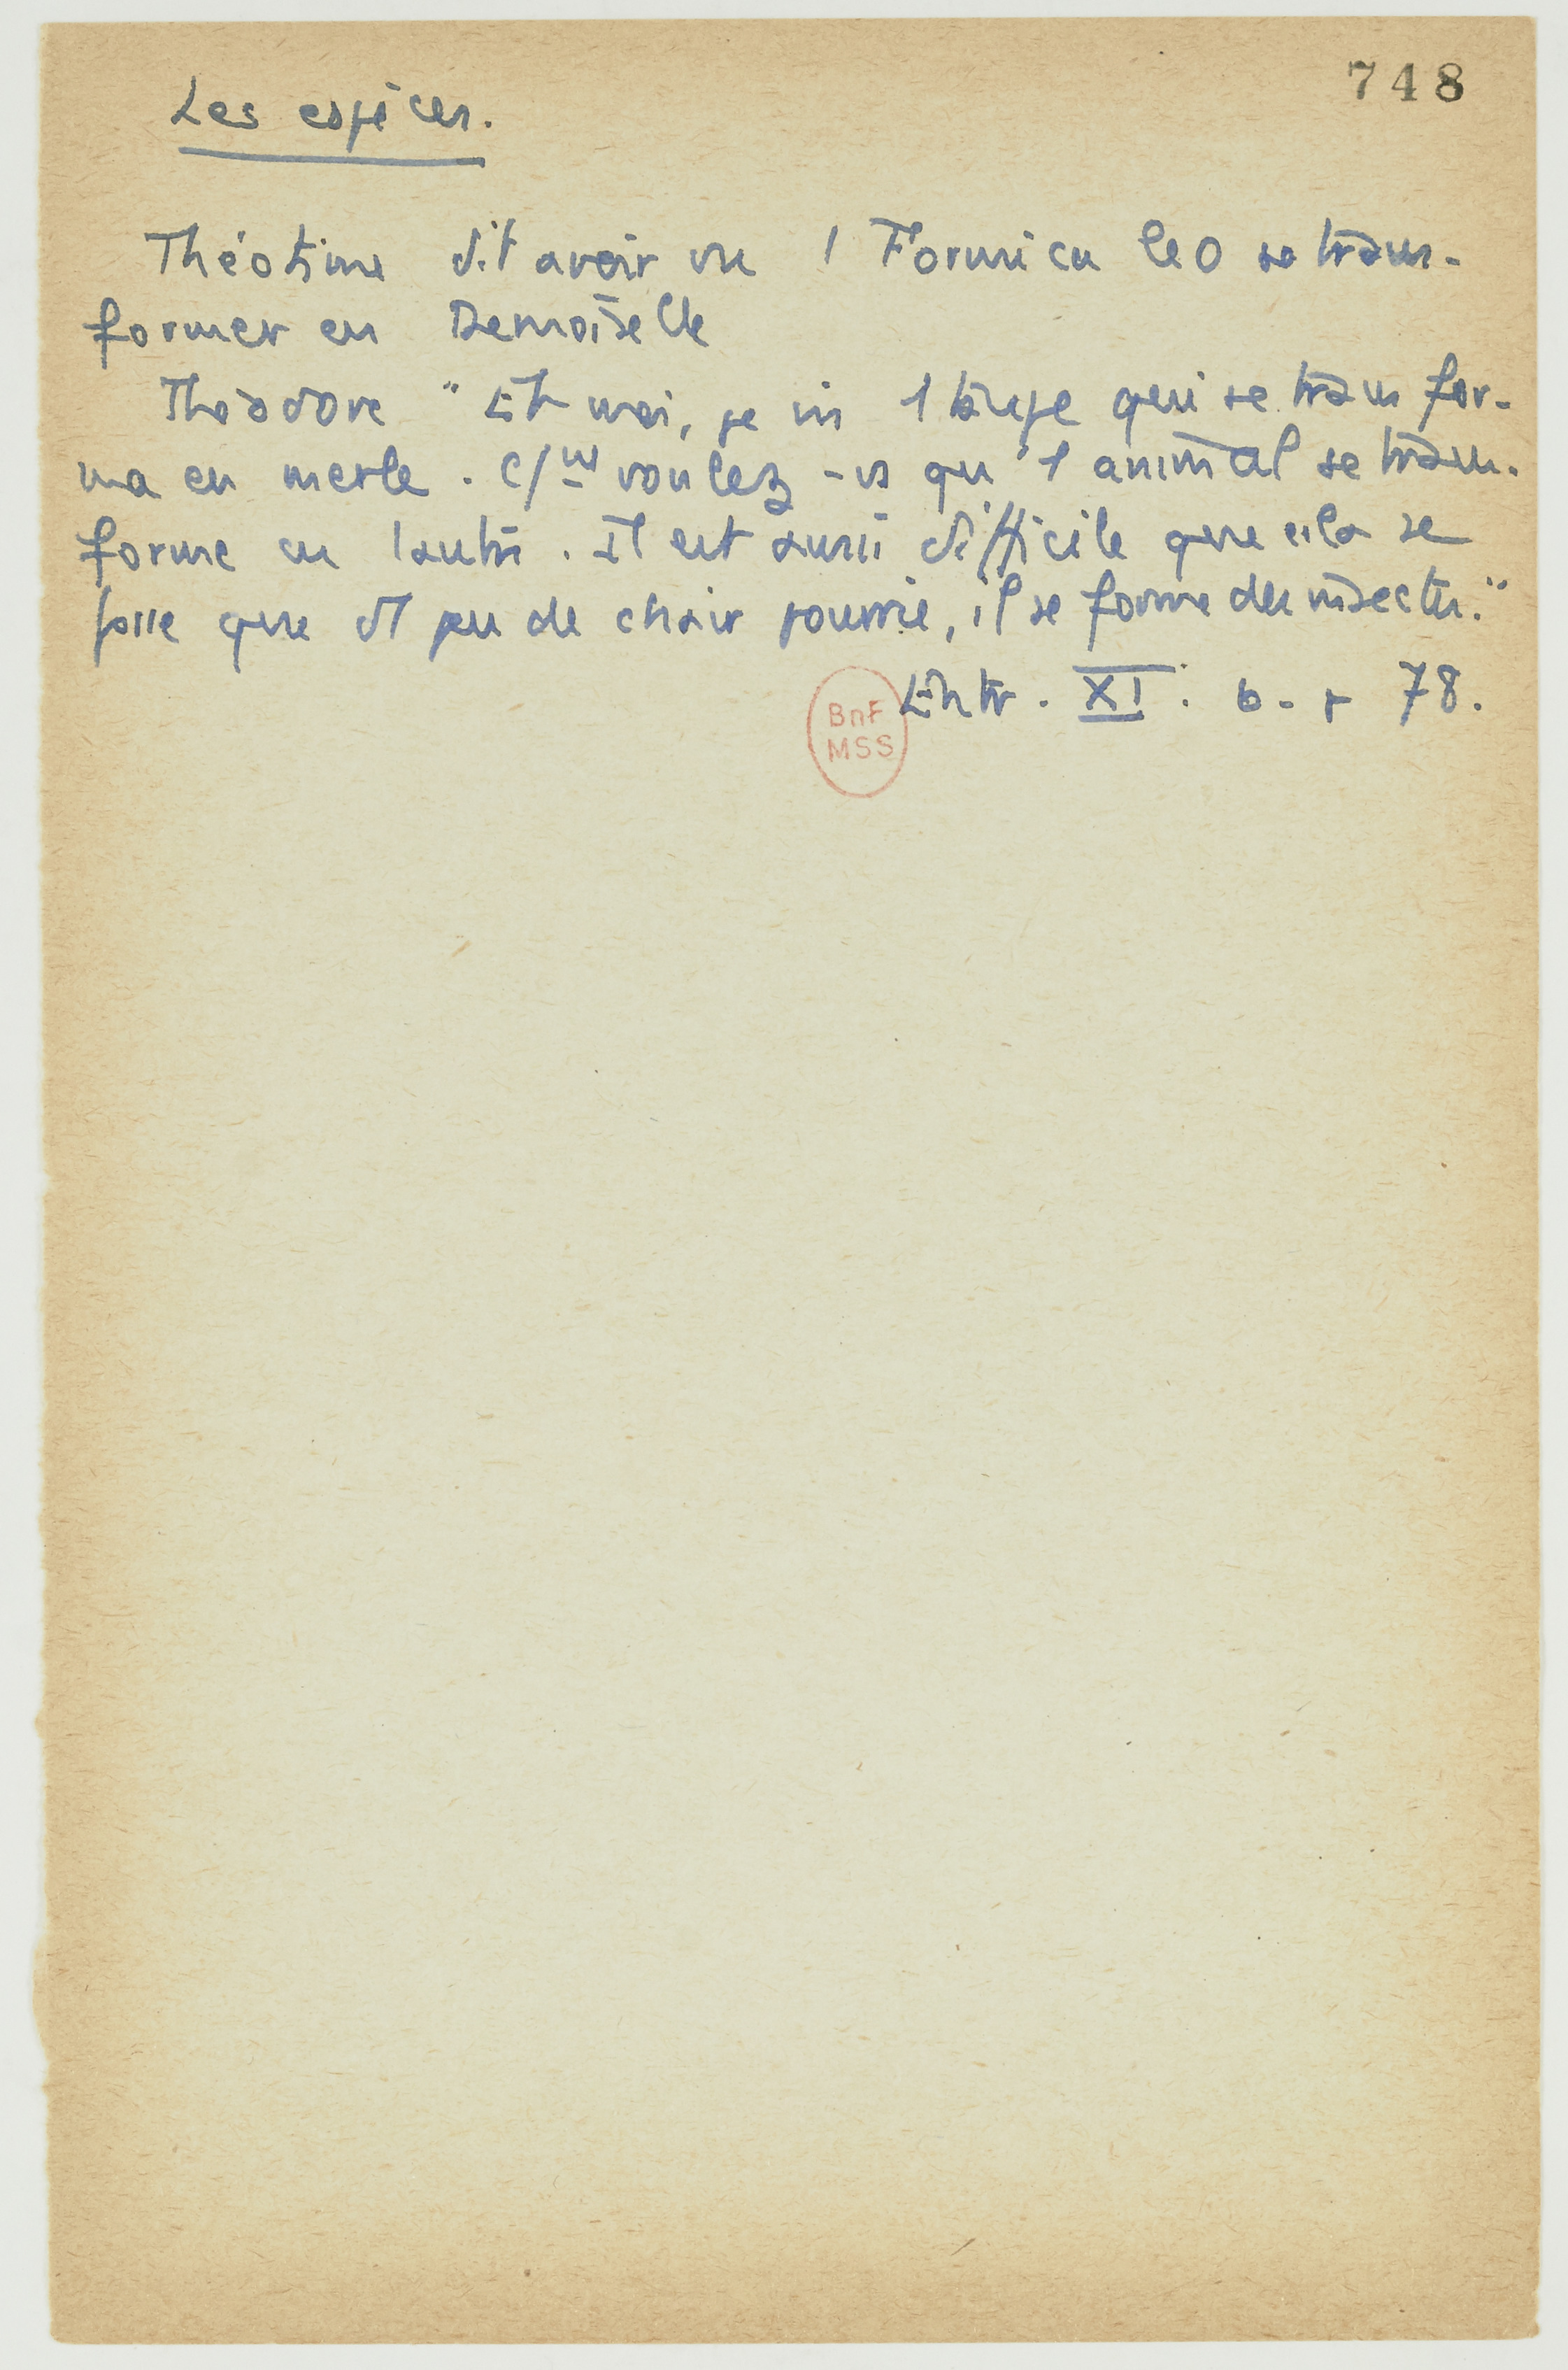 748
Les espèces.
Théotime dit avoir vu 1 Formica leo se trans-
former en Demoiselle
Théodore "Et moi, je vis 1 taupe qui se transfor-
ma en merle. C/nt voulez-vs qu'1 animal se trans-
forme en 1 autre. Il est aussi difficile que cela se
fasse que d'1 peu de chair pourrie, il se forme des insectes."
Entr. XI. 6. p 78.
BnF
MSS